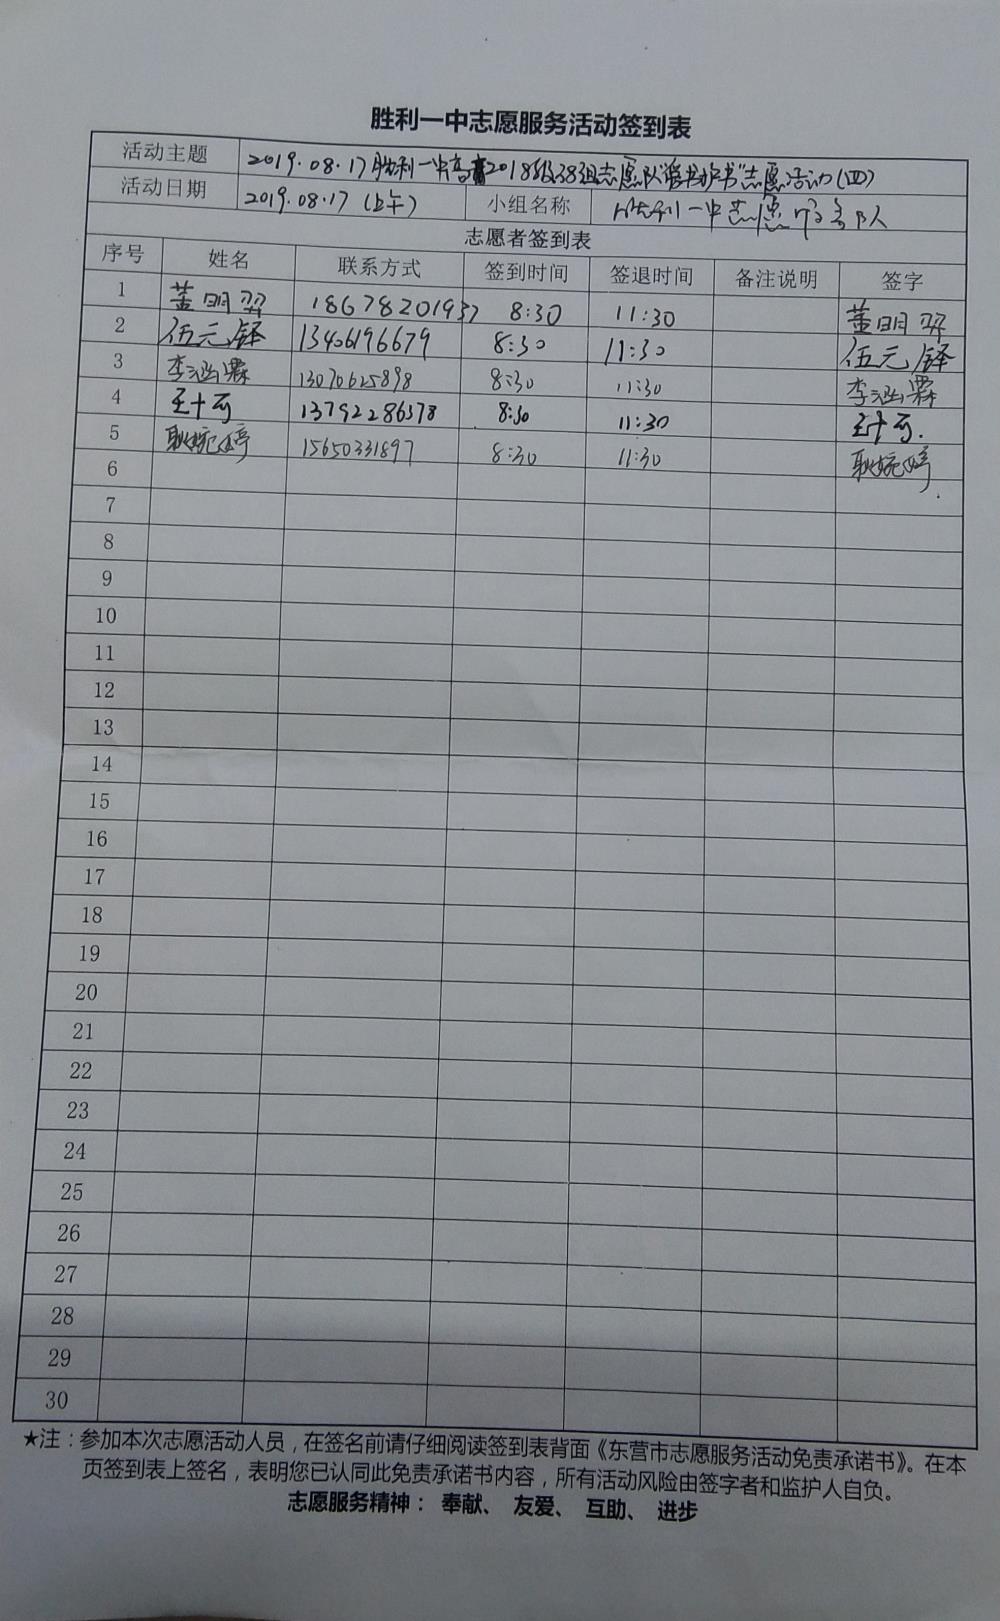 胜利一中志愿服务活动签到表
活动主题 2019.08.17胜利一中高2018级38组志愿队"借书护书"志愿活动(四)
活动日期 2019.08.17 (上午) 小组名称 胜利一中志愿服务队
志愿者签到表
序号 姓名 联系方式 签到时间 签退时间 备注说明 签字
1 董明羿 18678201937 8:30 11:30 董明羿
2 伍元铎 13406196679 8:30 11:30 伍元铎
3 李涵霖 13070625898 8:30 11:30 李涵霖
4 王十可 13792286378 8:30 11:30 王十可.
5 耿婉婷 15650331897 8:30 11:30 耿婉婷
6
7
8
9
10
11
12
13
14
15
16
17
18
19
20
21
22
23
24
25
26
27
28
29
30
★注：参加本次志愿活动人员，在签名前请仔细阅读签到表背面《东营市志愿服务活动免责承诺书》。在本
页签到表上签名，表明您已认同此免责承诺书内容，所有活动风险由签字者和监护人自负。
志愿服务精神： 奉献、 友爱、 互助、 进步